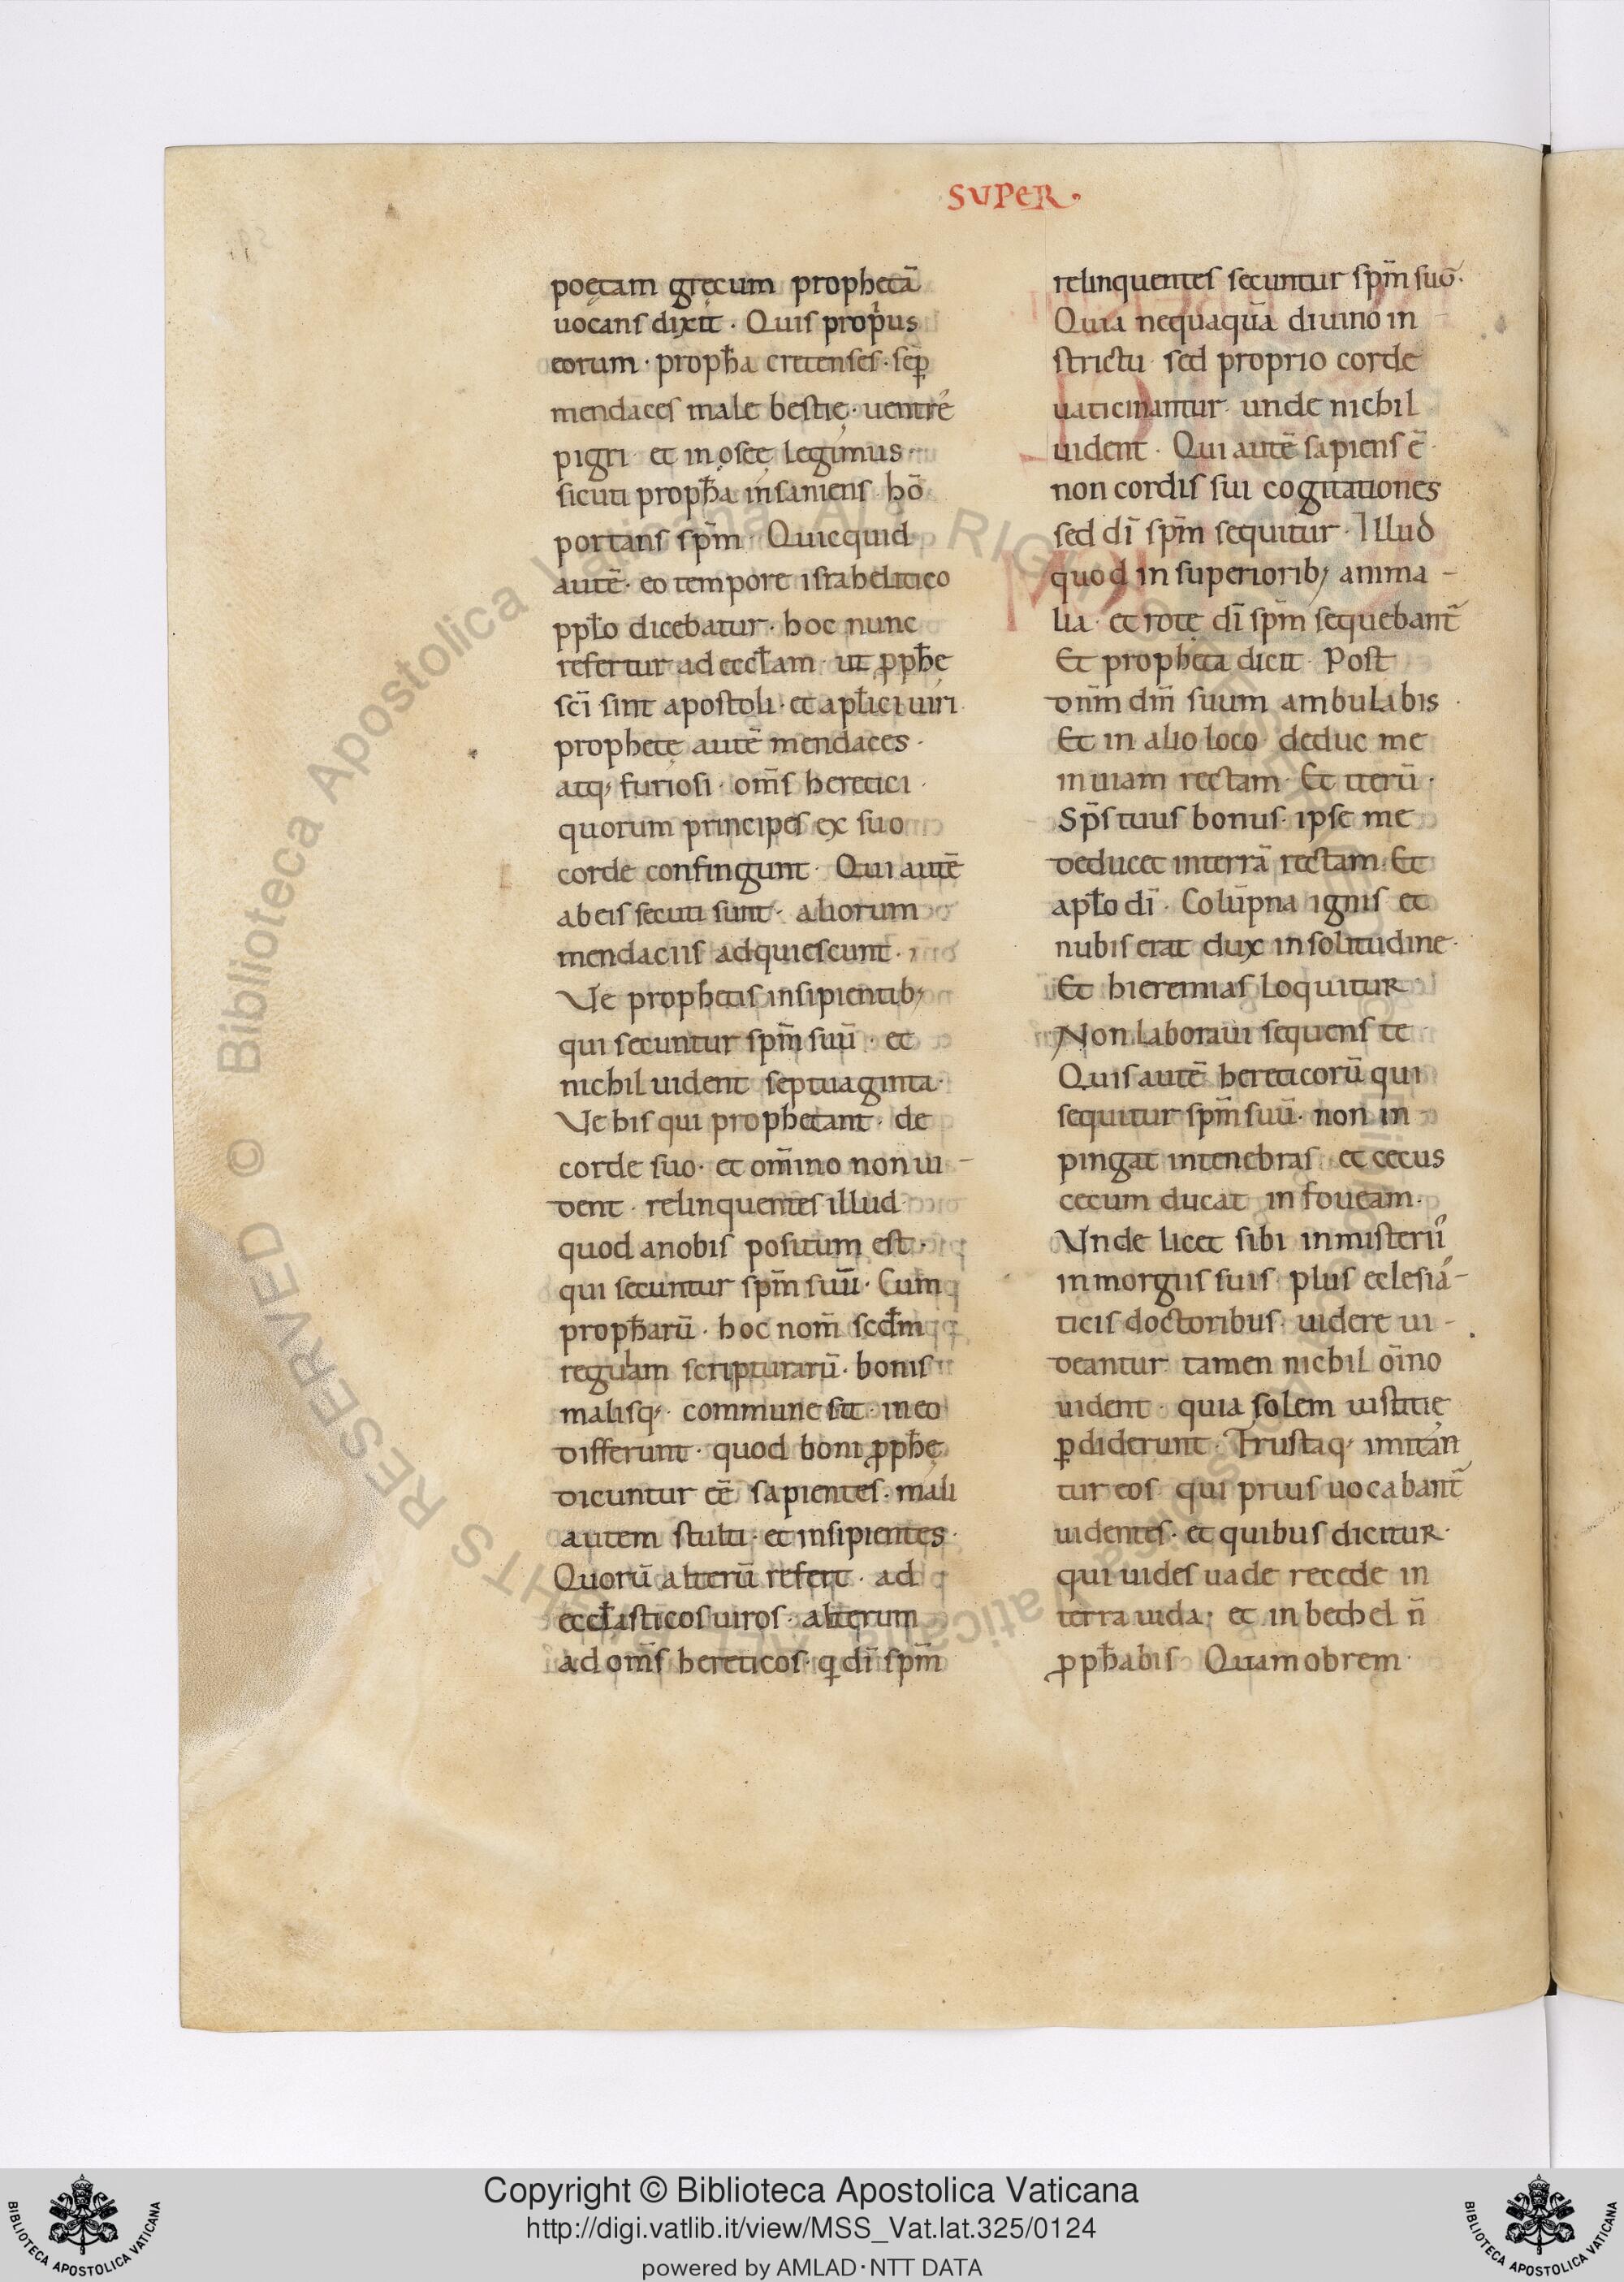 SUPER.
poetam gręcum prophetā
uocans dixit · Quis prop̍us
eorum · prop̄ha cretenses · sep̄
mendaces male bestię · uentre
pigri · et in osee legimus ·
sicuti prop̄ha insaniens · hō
portans sp̄m · Quicquid
autē · eo tempore israhelitico
pplo dicebatur · hoc nunc
refertur ad eccłam · ut ꝓph̄e
sc̄i sint apostoli · et apłici uiri
prophetę autē mendaces ·
atq; furiosi · om̄s heretici ·
quorum principes ex suo
corde confingunt · Qui autē
ab eis secuti sunt · aliorum
mendaciis adquiescunt ·
Ve prophetis insipientib;
qui secuntur sp̄m suū · et
nichil uident septuaginta ·
Ve his qui prophetant · de
corde suo · et om̄ino non ui-
dent · relinquentes illud
quod anobis positum est ·
qui secuntur sp̄m suū · Cum
proph̄arū · hoc nom̄ scd̄m
regulam scripturarū · bonis
malisq; · commune sit · in eo
differunt · quod boni ꝓph̄ę
dicuntur eē sapientes · mali
autem stulti · et insipientes ·
Quorū alterū refert · ad
eccłasticos uiros · alterum
ad om̄s hereticos · q dī sp̄m
relinquentes secuntur sp̄m suū ·
Quia nequaquā diuino in
strictu · sed proprio corde
uaticinantur · unde nichil
uident · Qui autē sapiens ē ·
non cordis sui cogitationes
sed dī sp̄m sequitur · Illud
quod in superiorib; anima-
lia · et rotę dī sp̄m sequebant̄
Et propheta dicit · Post
dn̄m dm̄ suum ambulabis ·
Et in alio loco deduc me
in uiam rectam · Et iterū ·
Sp̄s tuus bonus · ipse me
deducet interrā rectam · Et
apło dī · Colūpna ignis et
nubis erat dux in solitudine ·
Et hieremias loquitur
Non laboraui sequens te
Quis autē hereticorū qui
sequitur sp̄m suū · non in
pingat intenebras · et cecus
cecum ducat in foueam ·
Vnde licet sibi inmisteriis
inmorgiis suis · plus eclesia-
ticis doctoribus · uidere ui-
deantur tamen nichil oīno
uident · quia solem iustitię
ꝑdiderunt · Frustaq; imitan
tur eos qui prius uocabant̄
uidentes · et quibus dicitur ·
qui uides uade recede in
terra iuda · et in bethel n̄
ꝓph̄abis Quamobrem ·
© Biblioteca Apostolica Vaticana ALL RIGHTS RESERVED
Copyright © Biblioteca Apostolica Vaticana
http://digi.vatlib.it/view/MSS_Vat.lat.325/0124
powered by AMLAD·NTT DATA
BIBLIOTECA APOSTOLICA VATICANA
BIBLIOTECA APOSTOLICA VATICANA